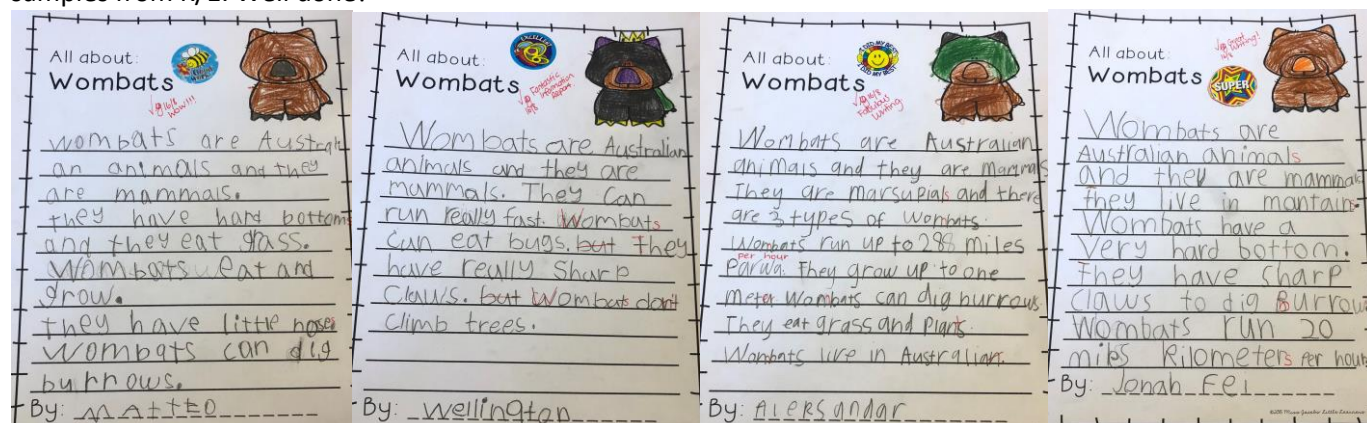 samples from K/1. Well done!
All about:
Wombats
16/8
Wow!!!
wombats are Austrah
an animals and they
are mammals.
they have hard bottoms
and they eat grass.
Wombats eat and
grow.
they have little noses
wombats can dig
burrows.
By: MATTEO
All about:
Wombats
EXCELLENT
16/8
Fantastic
Information
Report.
Wombats are Australian
animals and they are
mammals. They Can
run really fast. Wombats
Can eat bugs. but They
have really Sharp
Claws. but Wombats don't
Climb trees.
By: Wellington
All about:
Wombats
I DID MY BEST
16/8
Fabulous
Writing
Wombats are Australian
animals and they are mammals
They are marsupials and there
are 3 types of wombats.
Wombats run up to 298 miles
per hour
They grow up to one
meter Wombats can dig burrows.
They eat grass and plants.
Wombats live in Australian.
By: Aleksandar
All about:
Wombats
16/8
Great
Writing!
SUPER
Wombats are
Australian animals
and they are mammals
they live in mantain.
Wombats have a
Very hard bottom.
They have sharp
claws to dig Burrows
Wombats run 20
miles kilometers per hour
By: Jonah Fei